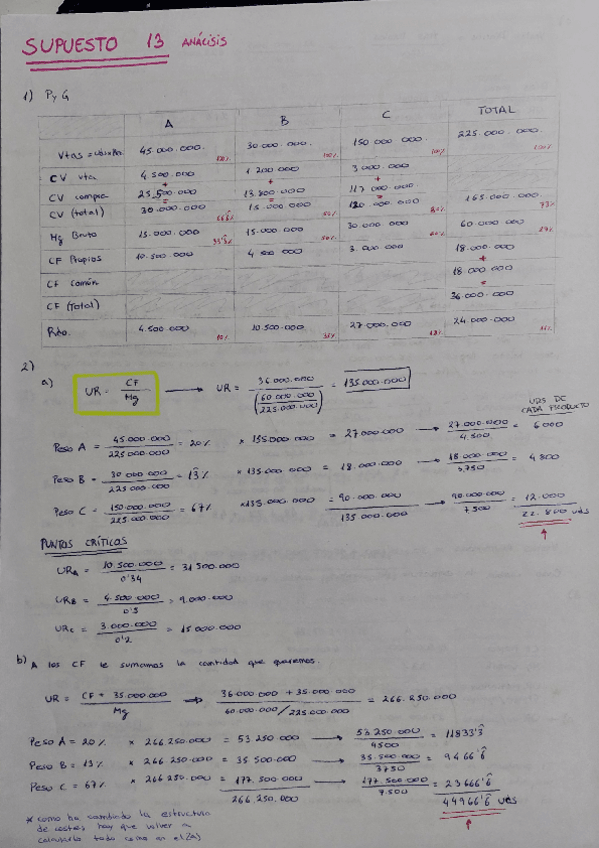 SUPUESTO 13 ANÁLISIS
1) PyG
A B C TOTAL
Vtas = 45.000.000. 100% 30.000.000. 100% 150.000.000. 100% 225.000.000. 100%
CV vta 4.500.000 1.200.000 3.000.000
+ + +
CV compra 25.500.000 13.800.000 117.000.000
= = =
CV (total) 30.000.000 15.000.000 120.000.000 165.000.000
Mg Bruto 15.000.000 15.000.000 30.000.000 60.000.000
CF Propios 10.500.000 4.500.000 3.000.000 18.000.000
+
CF Común 18.000.000
=
CF (Total) 36.000.000
Rdo. 4.500.000 10.500.000 27.000.000 24.000.000
2)
a) UR = CF / Mg → UR = 36.000.000 / (60.000.000 / 225.000.000) = 135.000.000
UDS DE CADA PRODUCTO
Peso A = 45.000.000 / 225.000.000 = 20% * 135.000.000 = 27.000.000 → 27.000.000 / 4.500 = 6000
Peso B = 30.000.000 / 225.000.000 = 13% * 135.000.000 = 18.000.000 → 18.000.000 / 3.750 = 4.800
Peso C = 150.000.000 / 225.000.000 = 67% *135.000.000 = 90.000.000 → 90.000.000 / 7.500 = 12.000
135.000.000 22.800 uds
PUNTOS CRÍTICOS
URA = 10.500.000 / 0'34 = 31.500.000
URB = 4.500.000 / 0'5 = 9.000.000
URC = 3.000.000 / 0'2 = 15.000.000
b) A los CF le sumamos la cantidad que queremos.
UR = CF + 35.000.000 / Mg → 36.000.000 + 35.000.000 / 60.000.000/225.000.000 = 266.250.000
Peso A = 20% * 266.250.000 = 53.250.000 → 53.250.000 / 4500 = 11833'3
Peso B = 13% * 266.250.000 = 35.500.000 → 35.500.000 / 3750 = 9466'6
Peso C = 67% * 266.250.000 = 177.500.000 → 177.500.000 / 7.500 = 23666'6
266.250.000 44966'6 uds
* como ha cambiado la estructura
de costes hay que volver a
calcularlo todo como en el 2a)